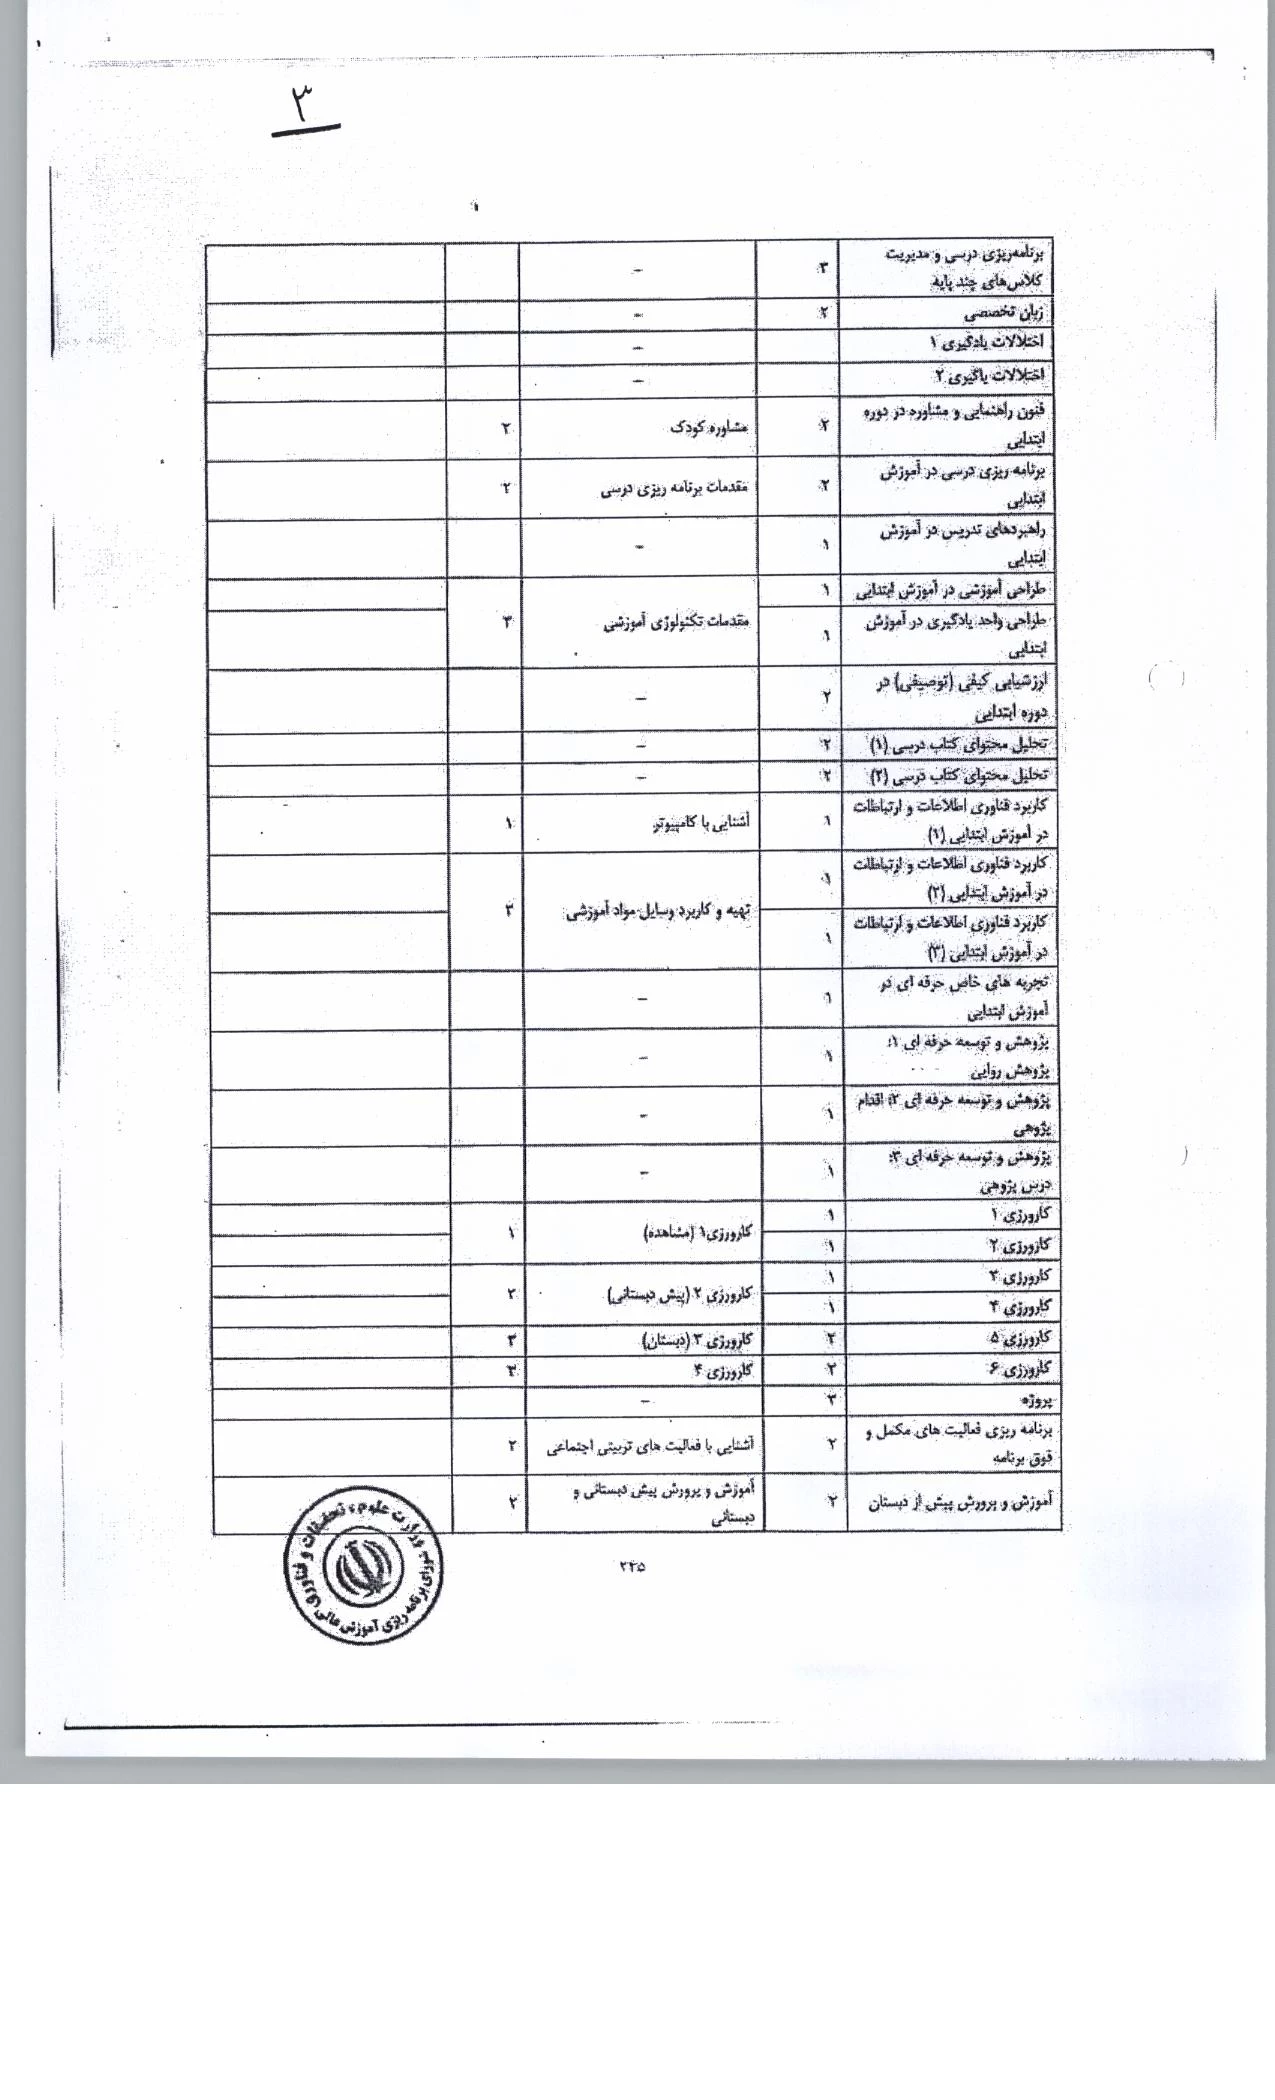 ۳
برنامه‌ریزی درسی و مدیریت ۳ –
کلاس‌های چند پایه
زبان تخصصی ۲ –
اختلالات یادگیری ۱ –
اختلالات یاگیری ۲ –
فنون راهنمایی و مشاوره در دوره ۲ مشاوره کودک ۲
ابتدایی
برنامه ریزی درسی در آموزش ۲ مقدمات برنامه ریزی درسی ۲
ابتدایی
راهبردهای تدریس در آموزش ۱ –
ابتدایی
طراحی آموزشی در آموزش ابتدایی ۱ مقدمات تکنولوژی آموزشی ۳
طراحی واحد یادگیری در آموزش ۱
ابتدایی
ارزشیابی کیفی (توصیفی) در ۲ –
دوره ابتدایی
تحلیل محتوای کتاب درسی (۱) ۲ –
تحلیل محتوای کتاب درسی (۲) ۲ –
کاربرد فناوری اطلاعات و ارتباطات ۱ آشنایی با کامپیوتر ۱
در آموزش ابتدایی (۱)
کاربرد فناوری اطلاعات و ارتباطات ۱ تهیه و کاربرد وسایل مواد آموزشی ۳
در آموزش ابتدایی (۲)
کاربرد فناوری اطلاعات و ارتباطات ۱
در آموزش ابتدایی (۳)
تجربه های خاص حرفه ای در ۱ –
آموزش ابتدایی
پژوهش و توسعه حرفه ای ۱: ۱ –
پژوهش روایی
پژوهش و توسعه حرفه ای ۲: اقدام ۱ –
پژوهی
پژوهش و توسعه حرفه ای ۳: ۱ –
درس پژوهی
کارورزی ۱ ۱ کارورزی۱ (مشاهده) ۱
کارورزی ۲ ۱
کارورزی ۳ ۱ کارورزی ۲ (پیش دبستانی) ۲
کارورزی ۴ ۱
کارورزی ۵ ۲ کارورزی ۳ (دبستان) ۳
کارورزی ۶ ۲ کارورزی ۴ ۳
پروژه ۳ –
برنامه ریزی فعالیت های مکمل و ۲ آشنایی با فعالیت های تربیتی اجتماعی ۲
فوق برنامه
آموزش و پرورش پیش از دبستان ۲ آموزش و پرورش پیش دبستانی و ۲
دبستانی
۲۴۵
وزارت علوم، تحقیقات و فناوری
برنامه ریزی آموزش عالی